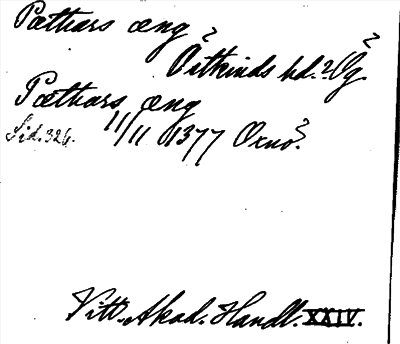 Pæthars æng ?
Östkinds hd.? Ög. ?
Pæthars æng
Sid. 326. 11/11 1377 Ornö. ?
Vitt. Akad. Handl. XXIV.